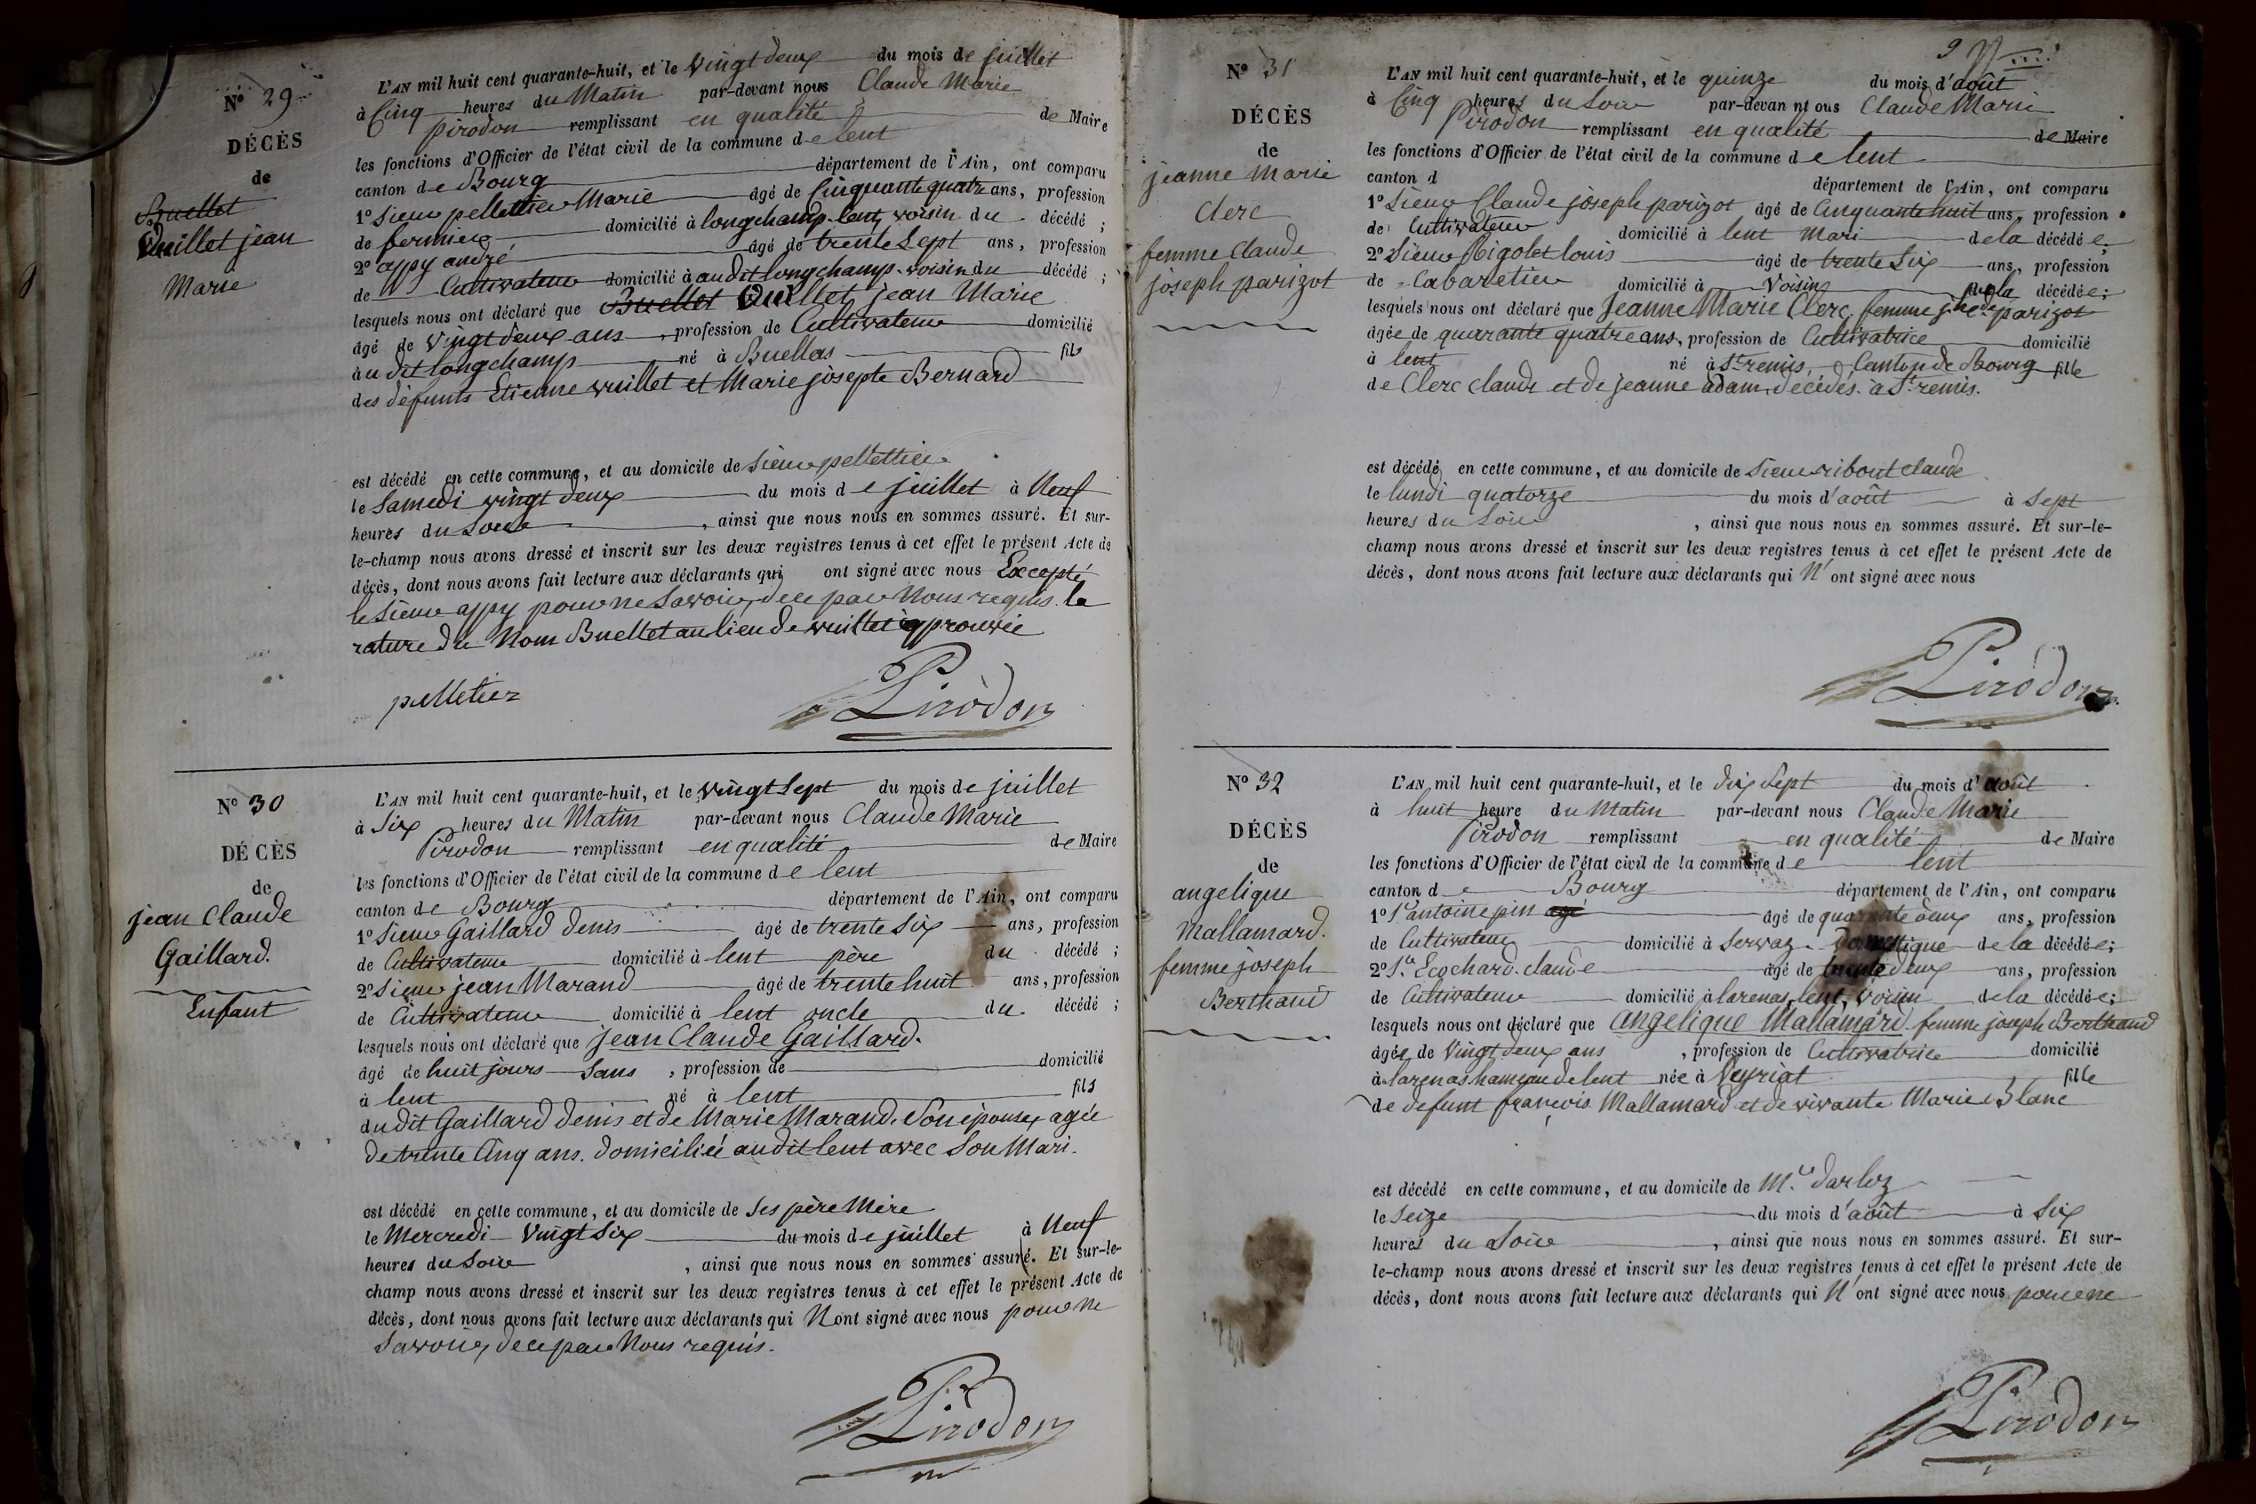 N° 29
DÉCÈS
de
Buellet
Vuillet jean
Marie
L'AN mil huit cent quarante-huit, et le vingt deux du mois de juillet
à Cinq heures du Matin par-devant nous Claude Marie
Pirodon remplissant en qualité de Maire
les fonctions d'Officier de l'état civil de la commune de lent
canton de Bourg département de l'Ain, ont comparu
1° Sieur pellettier Marie âgé de Cinquante quatre ans, profession
de fermier domicilié à longchamp lent, voisin du décédé ;
2° appy andré âgé de trente Sept ans, profession
de Cultivateur domicilié à audit longchamp voisin du décédé ;
lesquels nous ont déclaré que Buellet Vuillet jean Marie
âgé de vingt deux ans, profession de Cultivateur domicilié
au dit longchamp né à Buellas fils
des défunts Etienne vuillet et Marie josepte Bernard
est décédé en cette commune, et au domicile de Sieur pellettier
le Samedi vingt deux du mois de juillet à Neuf
heures du Soir, ainsi que nous nous en sommes assuré. Et sur-
le-champ nous avons dressé et inscrit sur les deux registres tenus à cet effet le présent Acte de
décès, dont nous avons fait lecture aux déclarants qui ont signé avec nous Excepté
le Sieur appy pour ne Savoir, de ce par Nous requis. la
rature du Nom Buellet au lieu de vuillet approuvée
pelletier
Pirodon
N° 30
DÉCÈS
de
jean Claude
Gaillard.
Enfant
L'AN mil huit cent quarante-huit, et le vingt Sept du mois de juillet
à Six heures du Matin par-devant nous Claude Marie
Pirodon remplissant en qualité de Maire
les fonctions d'Officier de l'état civil de la commune de lent
canton de Bourg département de l'Ain, ont comparu
1° Sieur Gaillard denis âgé de trente Six ans, profession
de Cultivateur domicilié à lent père du décédé ;
2° Sieur jean Marand âgé de trente huit ans, profession
de Cultivateur domicilié à lent oncle du décédé ;
lesquels nous ont déclaré que jean Claude Gaillard.
âgé de huit jours Sans, profession de domicilié
à lent né à lent fils
du dit Gaillard denis et de Marie Marand. Son épouse, agée
de trente Cinq ans. domiciliée audit lent avec Son Mari.
est décédé en cette commune, et au domicile de Ses père Mère
le Mercredi Vingt Six du mois de juillet à Neuf
heures du Soir, ainsi que nous nous en sommes assuré. Et sur-le-
champ nous avons dressé et inscrit sur les deux registres tenus à cet effet le présent Acte de
décès, dont nous avons fait lecture aux déclarants qui N'ont signé avec nous pour ne
Savoir, de ce par Nous requis.
Pirodon
N° 31
DÉCÈS
de
jeanne Marie
Clerc
femme Claude
joseph parizot
L'AN mil huit cent quarante-huit, et le quinze du mois d'août
à Cinq heures du Soir par-devan nt ous Claude Marie
Pirodon remplissant en qualité de Maire
les fonctions d'Officier de l'état civil de la commune de lent
canton d département de l'Ain, ont comparu
1° Sieur Claude joseph parizot âgé de Cinquante huit ans, profession
de Cultivateur domicilié à lent Mari de la décédée ;
2° Sieur Rigolet louis âgé de trente Six ans, profession
de Cabaretier domicilié à Voisin de la décédée ;
lesquels nous ont déclaré que Jeanne Marie Clerc, femme parizot
âgée de quarante quatre ans, profession de Cultivatrice domicilié
à lent né à St remis, Canton de Bourg fille
de Clerc Claude et de jeanne adam, décédés à St remis.
est décédé en cette commune, et au domicile de Sieur ribout claude
le lundi quatorze du mois d'août à Sept
heures du Soir, ainsi que nous nous en sommes assuré. Et sur-le-
champ nous avons dressé et inscrit sur les deux registres tenus à cet effet le présent Acte de
décès, dont nous avons fait lecture aux déclarants qui N'ont signé avec nous
Pirodon
N° 32
DÉCÈS
de
angelique
Mallamard.
femme joseph
Berthaud
L'AN mil huit cent quarante-huit, et le dix Sept du mois d'août
à huit heure du Matin par-devant nous Claude Marie
Pirodon remplissant en qualité de Maire
les fonctions d'Officier de l'état civil de la commune de lent
canton de Bourg département de l'Ain, ont comparu
1° Sr antoine pin agé âgé de quarante deux ans, profession
de Cultivateur domicilié à Servaz. domestique de la décédée ;
2° Sr Ecochard claude âgé de trente deux ans, profession
de Cultivateur domicilié à larenas, lent, voisin de la décédée ;
lesquels nous ont déclaré que angelique Mallamard femme joseph Berthaud
âgée de Vingt deux ans, profession de Cultivatrice domicilié
à larenas hameau de lent née à Veyriat fille
de defunt françois Mallamard et de vivante Marie Blanc
est décédé en cette commune, et au domicile de Mr darloz
le Seize du mois d'août à Six
heures du Soir, ainsi que nous nous en sommes assuré. Et sur-
le-champ nous avons dressé et inscrit sur les deux registres tenus à cet effet le présent Acte de
décès, dont nous avons fait lecture aux déclarants qui N'ont signé avec nous pour ne
Pirodon